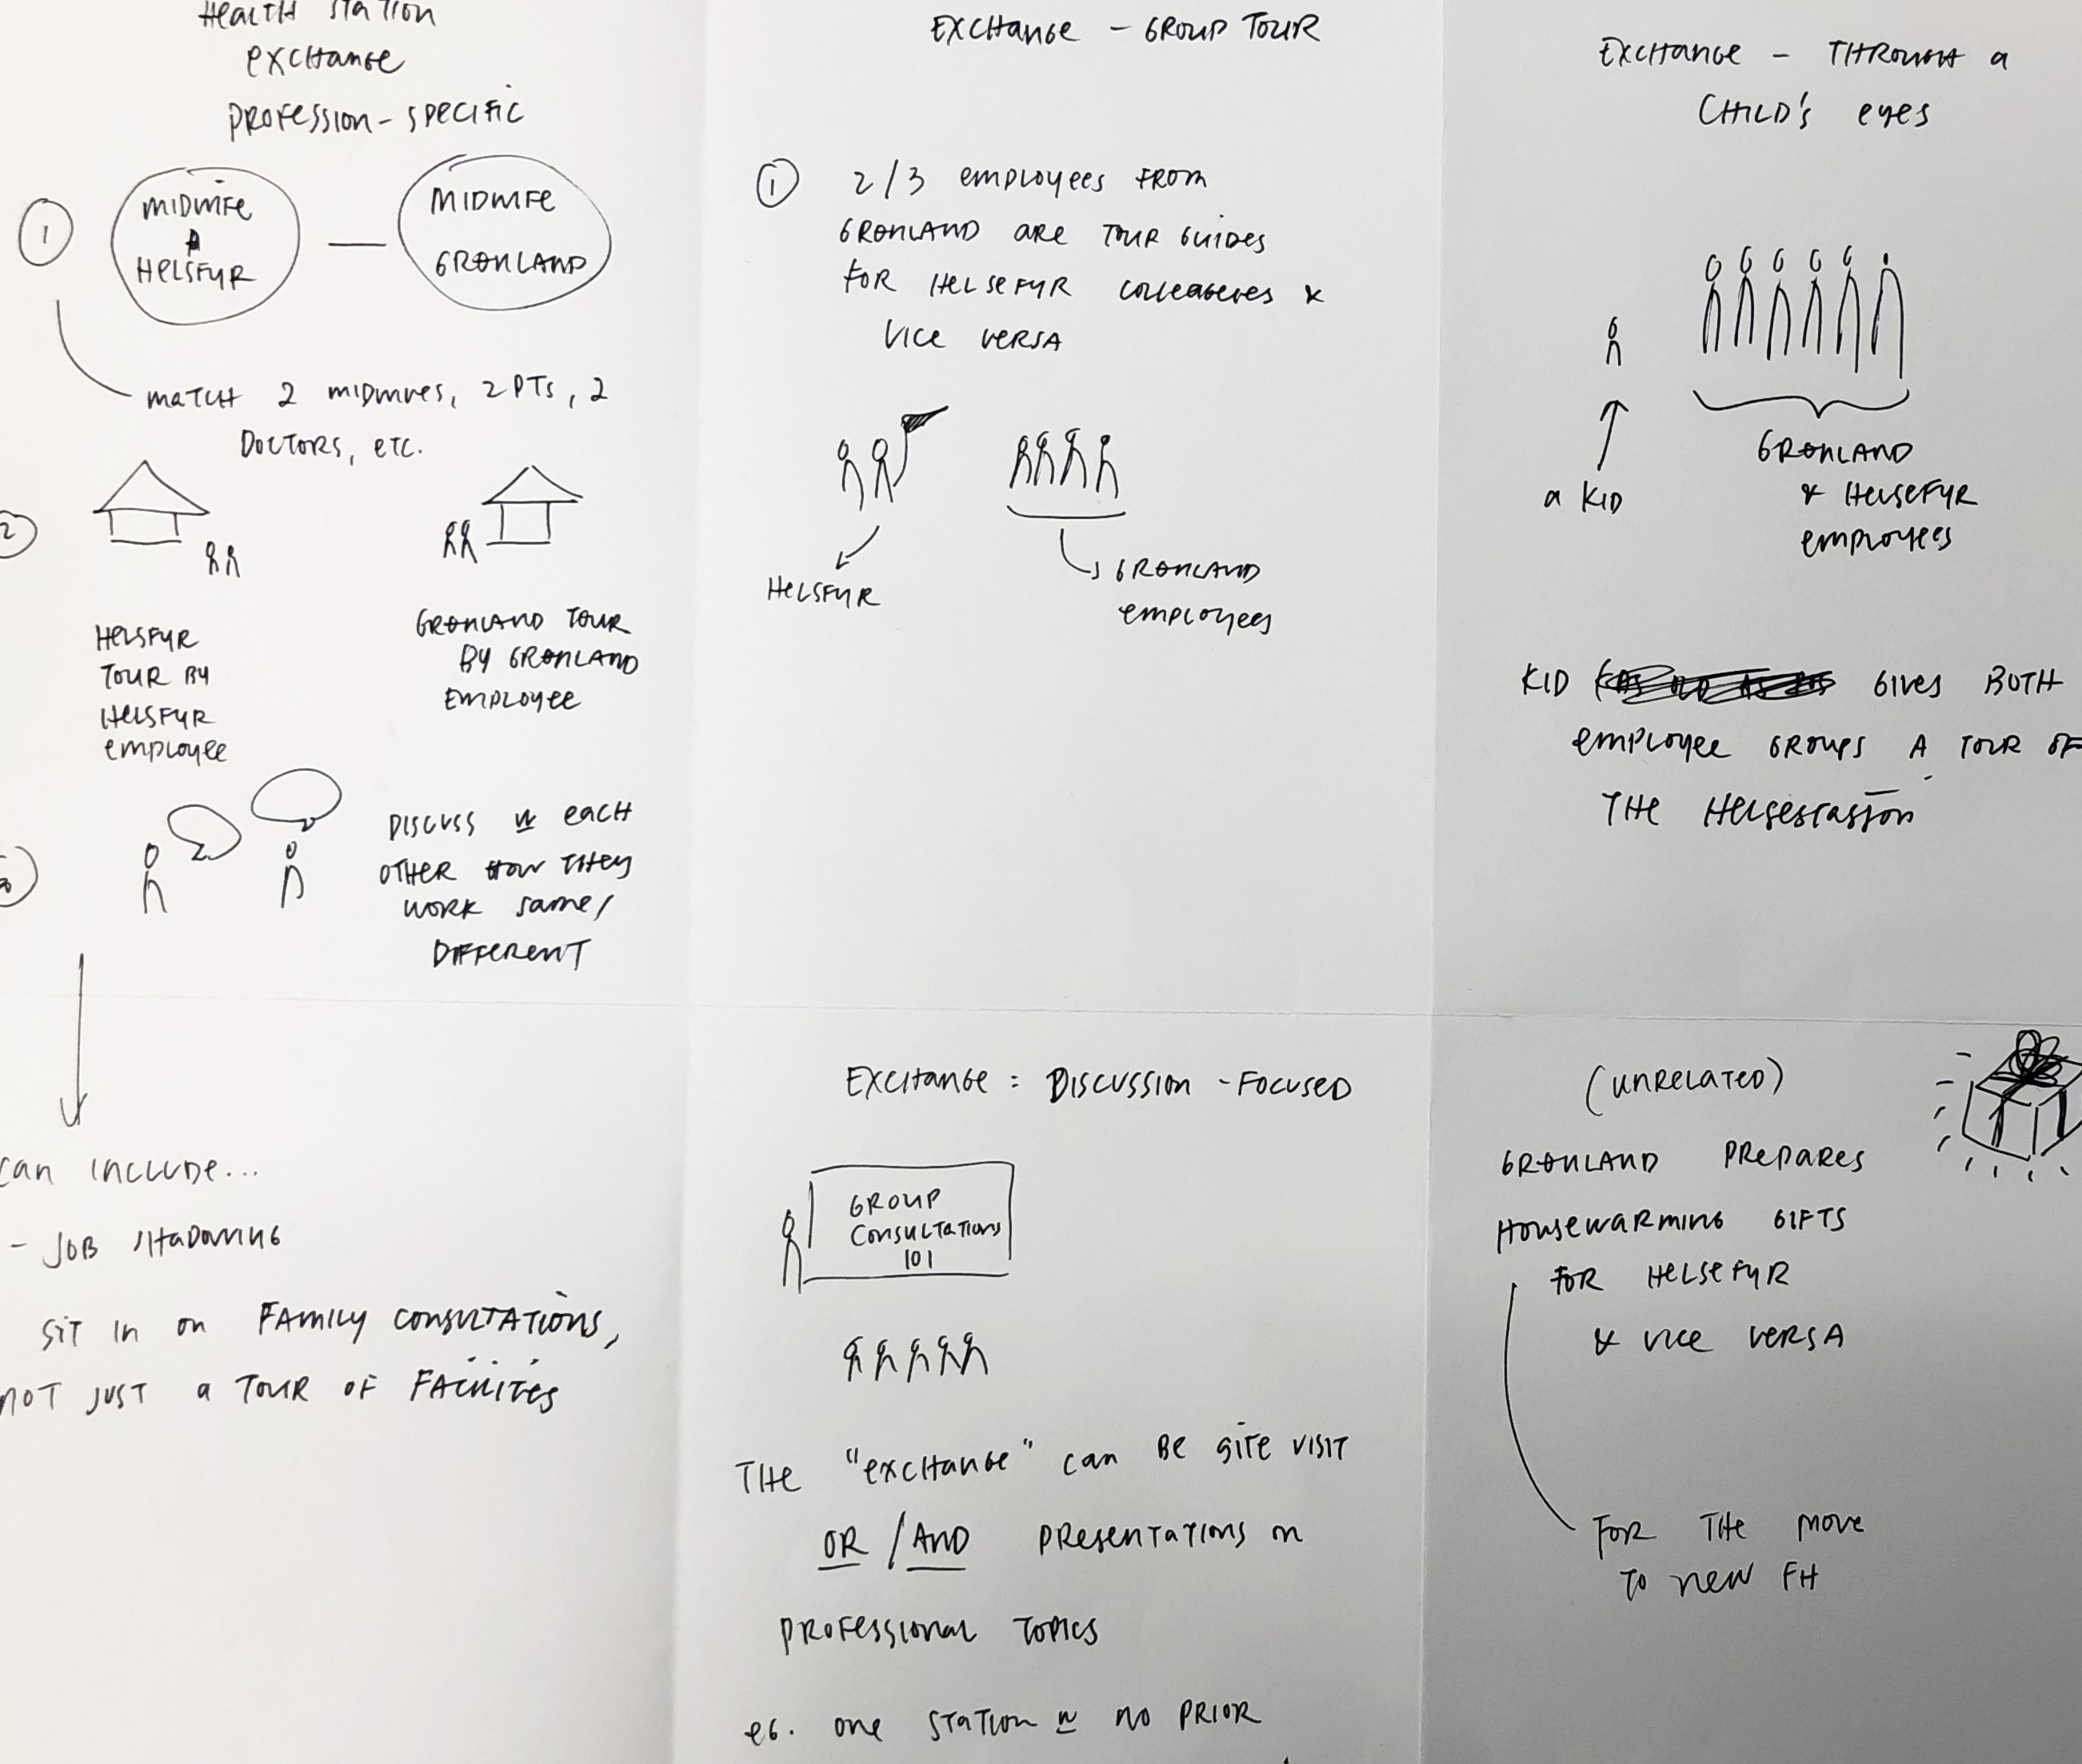 Health Station
Exchange
Profession-specific
1
Midwife
Helsfyr
Midwife
Grønland
match 2 midwives, 2 PTs, 2
Doctors, etc.
2
Helsfyr
Tour by
Helsfyr
employee
Grønland Tour
By Grønland
Employee
3
Discuss w each
other how they
work same/
Different
can include...
- Job shadowing
sit in on family consultations,
not just a tour of facilities
Exchange - Group Tour
1
2/3 employees from
Grønland are tour guides
for Helsefyr colleagues &
vice versa
Helsfyr
Grønland
employees
Exchange - Through a
child's eyes
a kid
Grønland
& Helsefyr
employees
Kid gives both
employee groups a tour of
the Helsestasjon
Exchange: Discussion-Focused
Group
Consultations
101
The "exchange" can be site visit
OR / AND presentations on
professional topics
eg. one station w no prior
(unrelated)
Grønland prepares
housewarming gifts
for Helsefyr
& vice versa
For the move
to new FH